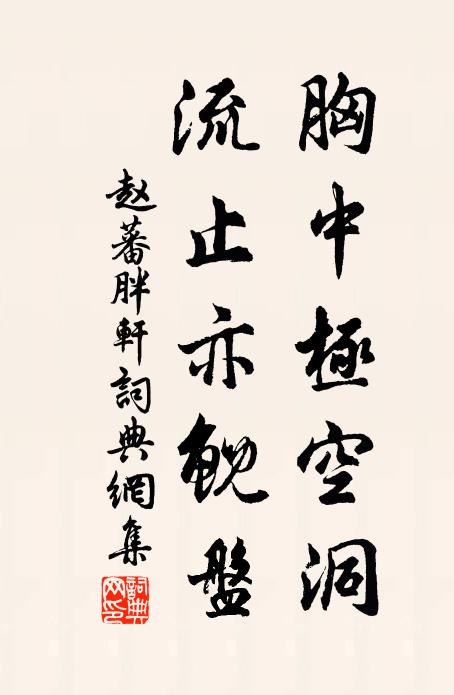 胸中極空洞
流止亦鯢盤
赵蕃胖軒詞典網集
詞典
网印